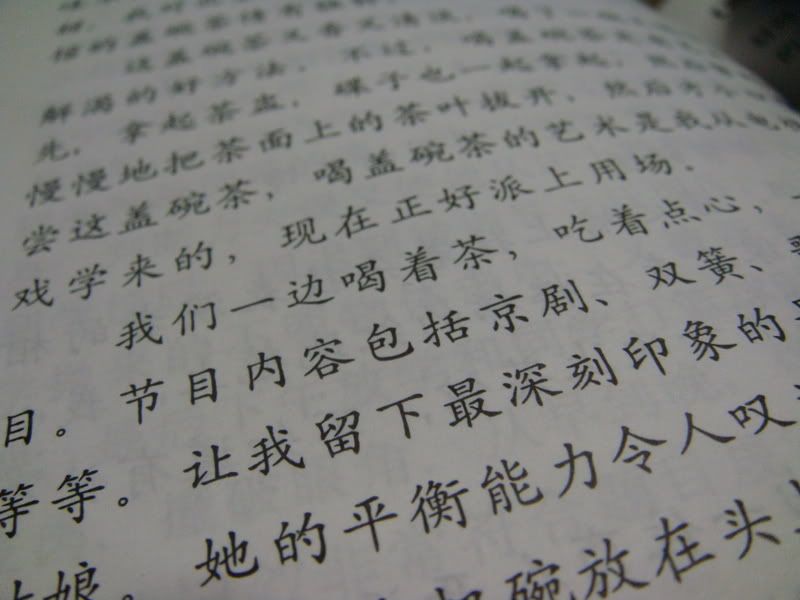 这盖碗茶又香又清淡，喝了一
解渴的好方法。不过，喝盖碗茶
先，拿起茶盅，碟子也一起拿起，然后
慢慢地把茶面上的茶叶拔开，然后才
尝这盖碗茶，喝盖碗茶的艺术是我从电
戏学来的，现在正好派上用场。
我们一边喝着茶，吃着点心，
目。节目内容包括京剧、双簧、
等等。让我留下最深刻印象的
娘。她的平衡能力令人叹
碗放在头